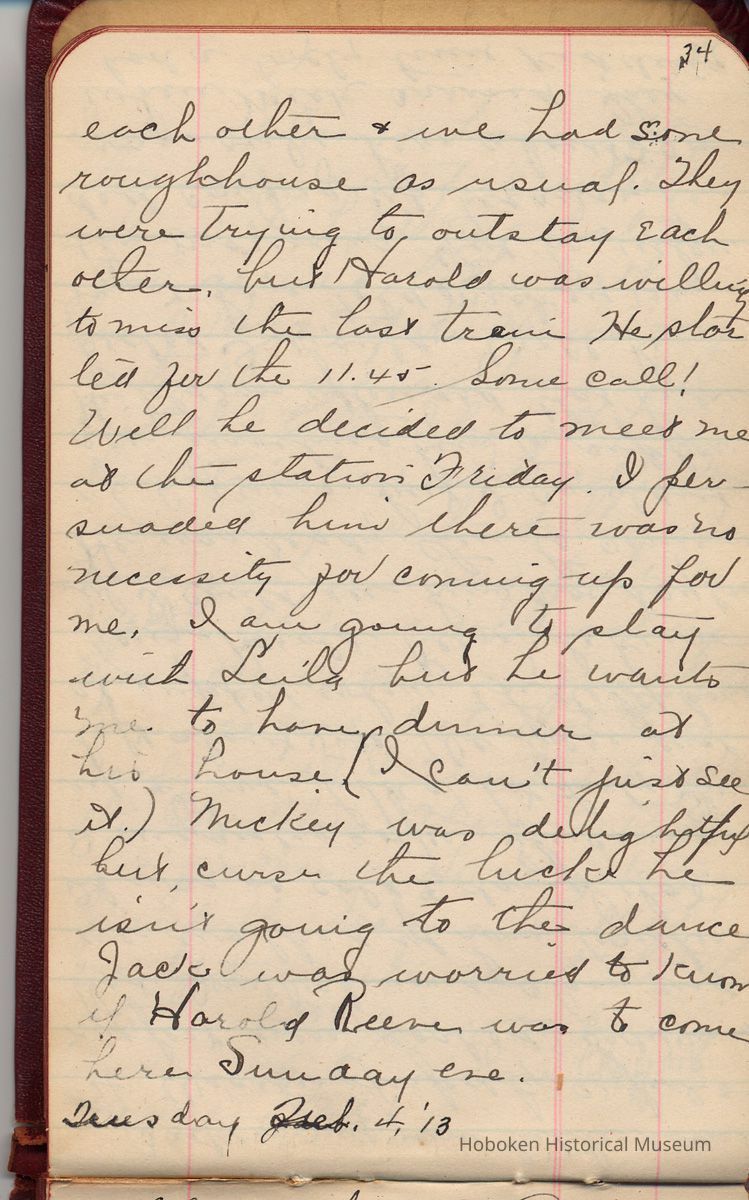 34
each other & we had some
roughhouse as usual. They
were trying to outstay each
other, but Harold was willing
to miss the last train He star
ted for the 11.45. Some call!
Well he decided to meet me
at the station Friday. I per-
suaded him there was no
necessity for coming up for
me. I am going to stay
with Leila but he wants
me to have dinner at
his house. (I can't just see
it.) Mickey was delightful
but, curse the luck he
isn't going to the dance
Jack was worried to know
if Harold Reeve was to come
here Sunday eve.
Tuesday Feb. 4, '13
Hoboken Historical Museum